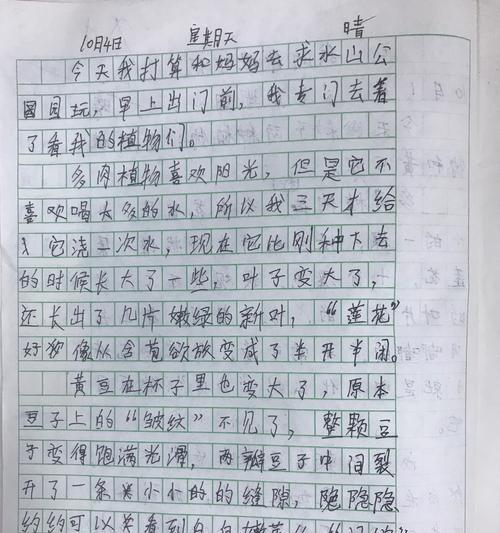 10月4日 星期天 晴
今天我打算和妈妈去求水山公
园园玩，早上出门前，我专门去看
了看我的植物们。
多肉植物喜欢阳光，但是它不
喜欢喝太多的水，所以我三天才给
它浇一次水，现在它比刚种下去
的时候长大了一些，叶子变大了，
还长出了几片嫩绿的新叶，“莲花”
好像从含苞欲放变成了半开半闭。
黄豆在杯子里也变大了，原本
豆子上的“皱纹”不见了，整颗豆
子变得饱满光滑，两瓣豆子中间裂
开了一条小小的的缝隙，隐隐隐
约约可以看到白白嫩